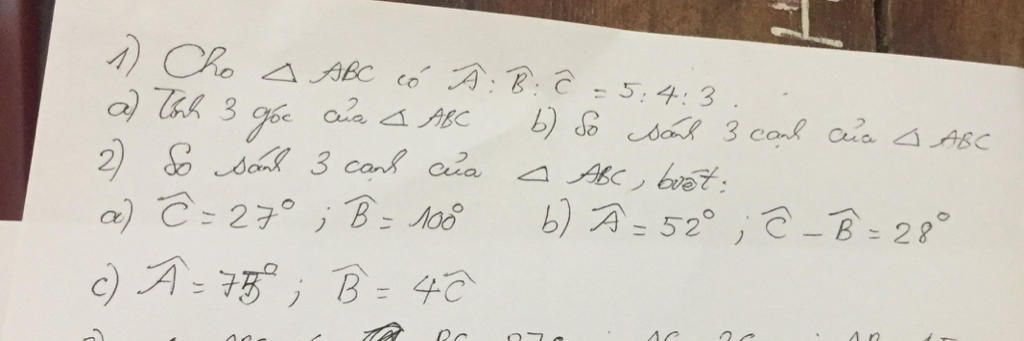 1) Cho △ ABC có Â : B̂ : Ĉ = 5 : 4 : 3 .
a) Tính 3 góc của △ ABC b) So sánh 3 cạnh của △ ABC
2) So sánh 3 cạnh của △ ABC, biết :
a) Ĉ = 27° ; B̂ = 100° b) Â = 52° ; Ĉ - B̂ = 28°
c) Â = 75° ; B̂ = 4Ĉ